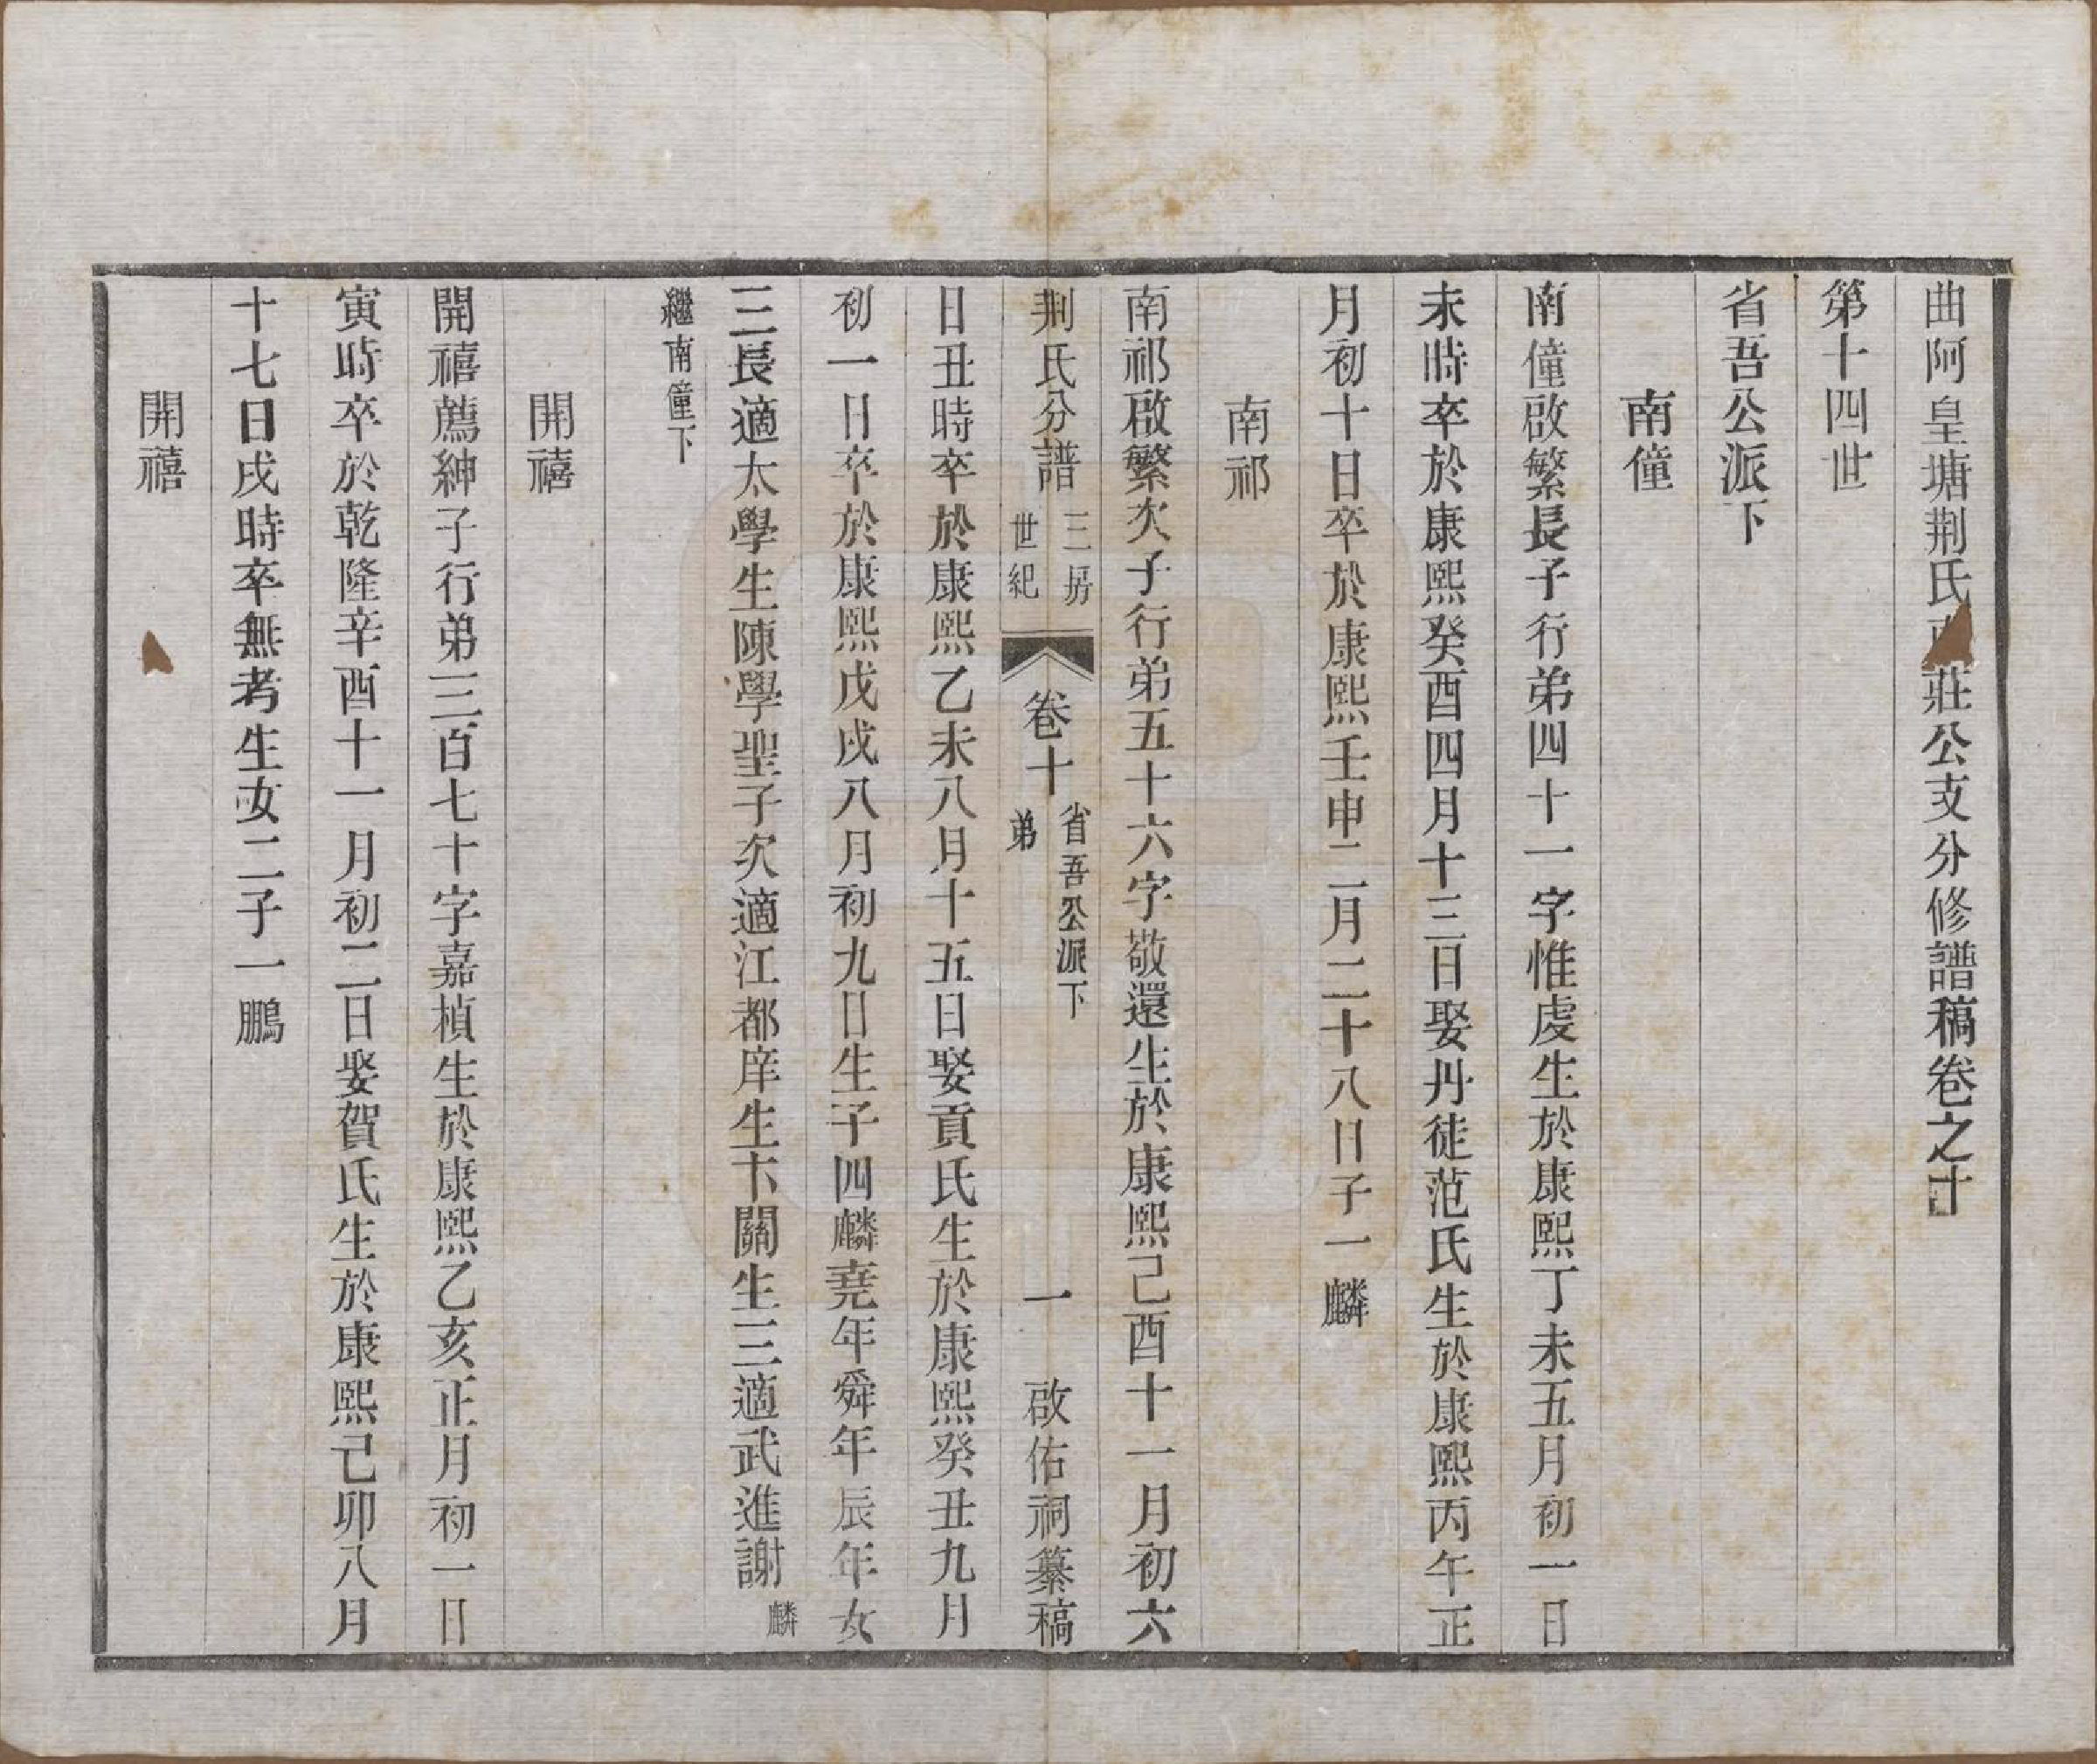 曲阿皇塘荆氏莊公支分修譜稿卷之十
第十四世
省吾公派下
南僮
南僮啟繁長子行弟四十一字惟虔生於康熙丁未五月初一日
未時卒於康熙癸酉四月十三日娶丹徒范氏生於康熙丙午正
月初十日卒於康熙壬申二月二十八日子一麟
南祁
南祁啟繁次子行弟五十六字敬還生於康熙己酉十一月初六
荆氏分譜 三房世紀 卷十 省吾公派下弟 一 啟佑祠纂稿
日丑時卒於康熙乙未八月十五日娶貢氏生於康熙癸丑九月
初一日卒於康熙戊戌八月初九日生子四麟堯年舜年辰年女
三長適太學生陳學聖子次適江都庠生卞關生三適武進謝 麟
繼南僮下
開禧
開禧薦紳子行弟三百七十字嘉楨生於康熙乙亥正月初一日
寅時卒於乾隆辛酉十一月初二日娶賀氏生於康熙己卯八月
十七日戌時卒無考生女二子一鵬
開禧